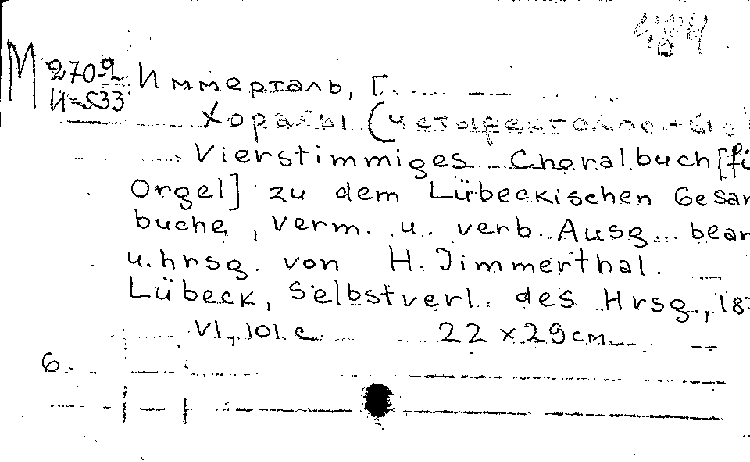 484
М 270-2
И-533
Иммерталь, Г.
Хоралы (четырехголосные)
Vierstimmiges Choralbuch [fü
Orgel] zu dem Lübeckischen Gesan
buche, verm. u. verb. Ausg. bear
u. hrsg. von H. Jimmerthal.
Lübeck, Selbstverl. des Hrsg., 18
VI, 101 с. 22 x 29 см.
6.